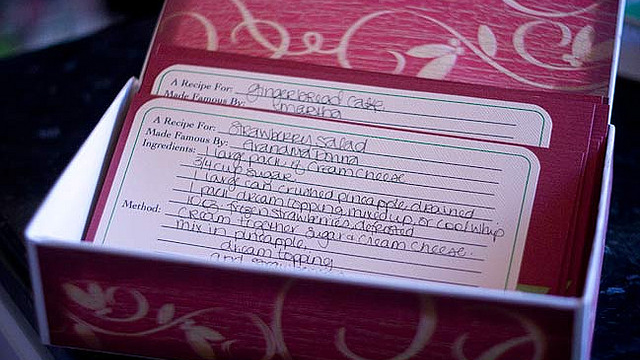 A Recipe For: gingerbread cake
Made Famous By: Marsha
A Recipe For: Strawberry Salad
Made Famous By: Grandma Donna
Ingredients: 1 large pack of cream cheese
3/4 cup sugar
1 large can crushed pineapple, drained
1 pack dream topping mixed up, or cool whip
10oz frozen strawberries, defrosted
Method: Cream together sugar & cream cheese.
mix in pineapple,
dream topping
and